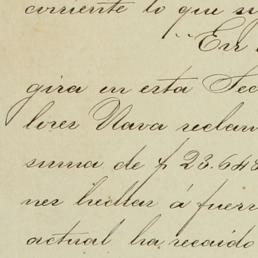 corriente lo que su
"En
gira en esta Sec
lores Nava reclam
suma de $ 23.648
nes hechas á fuer
actual ha recaido